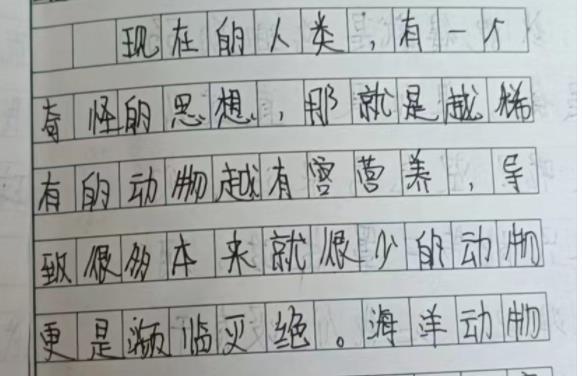 现在的人类，有一个
奇怪的思想，那就是越稀
有的动物越有营营养，导
致很多本来就很少的动物
更是濒临灭绝。海洋动物